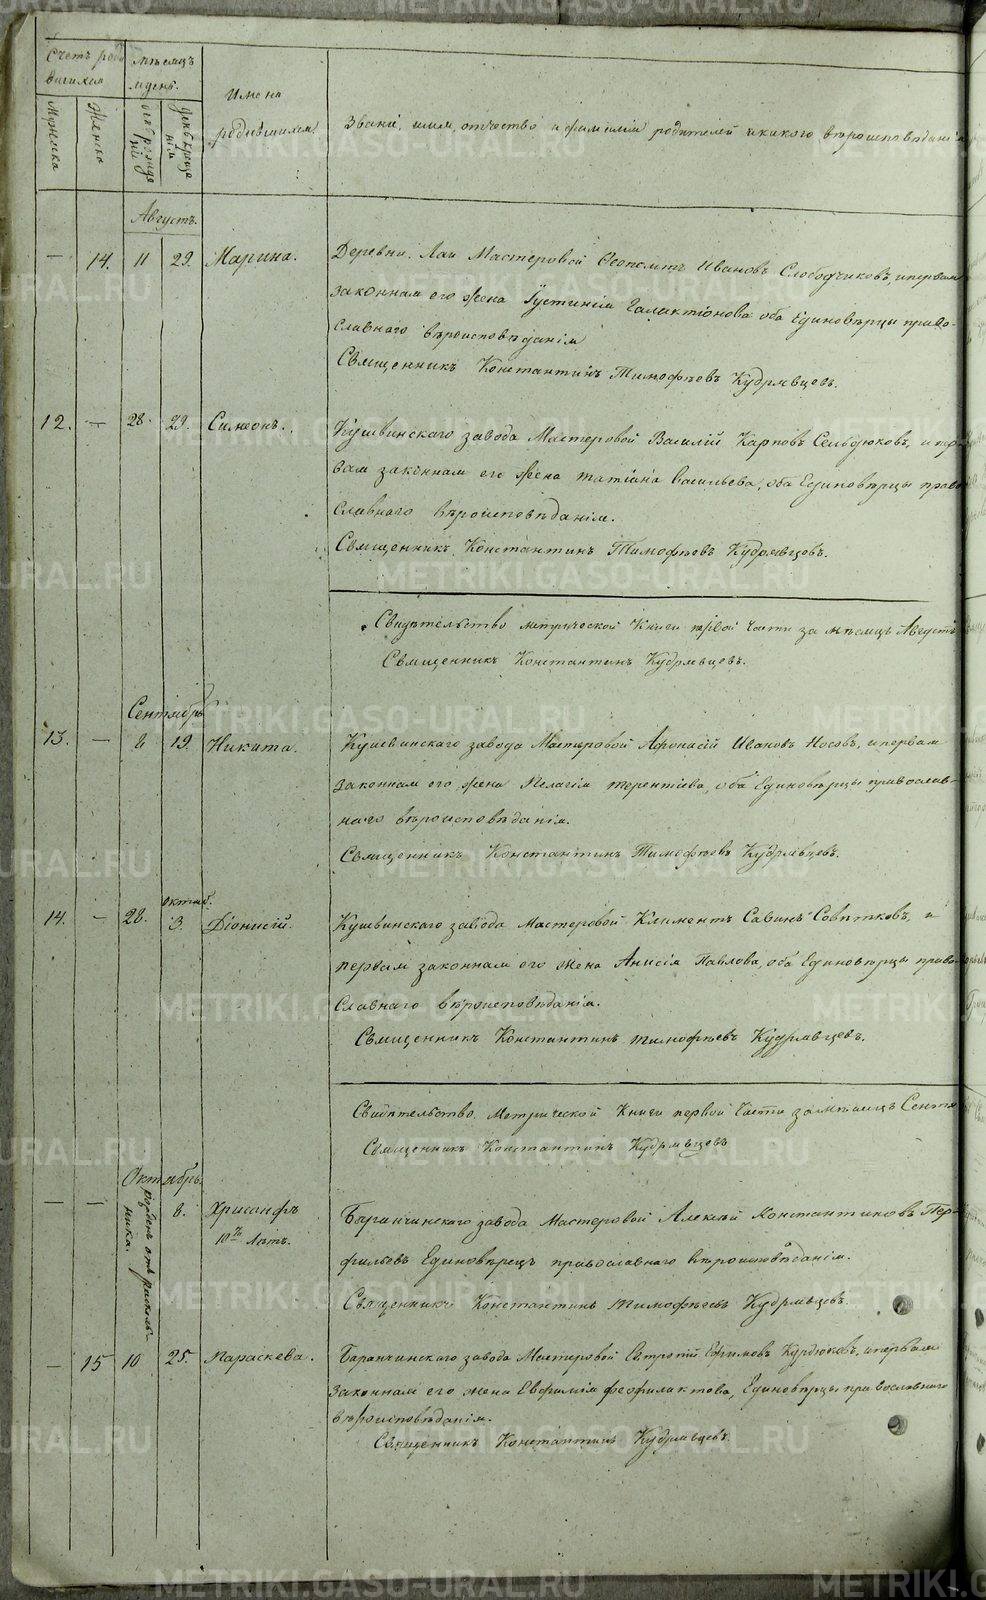 Счетъ родившихся
Мѣсяцъ и день.
Имена родившихся
Званіе, имя, отчество и фамилія родителей и какого вѣроисповѣданія
Мужеска
Женска
рожденій
крещенія
Августъ.
— 14. 11 29. Марина.
Деревни Лаи Мастеровой Ивановъ Слободчиковъ, и первая
законная его жена Іустинія Галактіонова оба Единовѣрцы право-
славнаго вѣроисповѣданія
Священникъ Константинъ Тимофѣевъ Кудрявцевъ.
12. — 28. 29. Симеонъ.
Кушвинскаго завода Мастеровой Василій Карповъ Сельдюковъ, и пер-
вая законная его жена Татіана Васильева, оба Единовѣрцы право
славнаго вѣроисповѣданія.
Священникъ Константинъ Тимофѣевъ Кудрявцевъ.
Свидѣтельство метрической Книги первой Части за мѣсяцъ Августъ
Священникъ Константинъ Кудрявцевъ.
Сентябрь
13. — 19. Никита.
Кушвинскаго завода Мастеровой Афонасій Ивановъ Носовъ, и первая
законная его жена Пелагія Терентіева, оба Единовѣрцы православ-
наго вѣроисповѣданія.
Священникъ Константинъ Тимофѣевъ Кудрявцевъ.
октяб.
14. — 28. 3. Діонисій.
Кушвинскаго завода Мастеровой Климентъ Савинъ Совѣтковъ, и
первая законная его жена Анисія Павлова, оба Единовѣрцы право
славнаго вѣроисповѣданія.
Священникъ Константинъ Тимофѣевъ Кудрявцевъ.
Свидѣтельство Метрической Книги первой Части за мѣсяцъ Сентя
Священникъ Константинъ Кудрявцевъ
Октябрь.
— — рожденъ отъ раскольника. 8. Хрисанфъ
10ти Лѣтъ.
Баранчинскаго завода Мастеровой Алексѣй Константиновъ Пер-
фильевъ Единовѣрецъ православнаго вѣроисповѣданія.
Священникъ Константинъ Тимофѣевъ Кудрявцевъ.
— 15 10 25. Параскева.
Баранчинскаго завода Мастеровой Евтропій Ефимовъ Курдюковъ, и первая
законная его жена Евфимія Феофилактова, Единовѣрцы православнаго
вѣроисповѣданія.
Священникъ Константинъ Кудрявцевъ.
METRIKI.GASO-URAL.RU